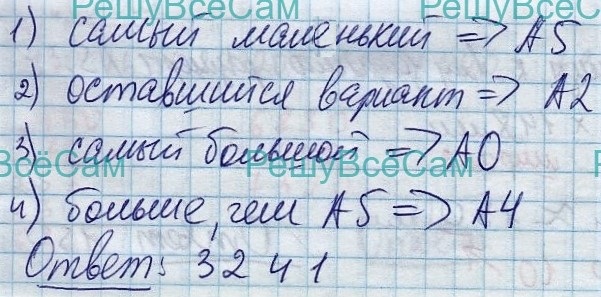 РешуВсёСам РешуВсёСам
1) самый маленький => A5
2) оставшийся вариант => A2
3) самый большой => A0
ВсёСам РешуВсёСам
4) больше, чем A5 => A4
Ответ: 3 2 4 1